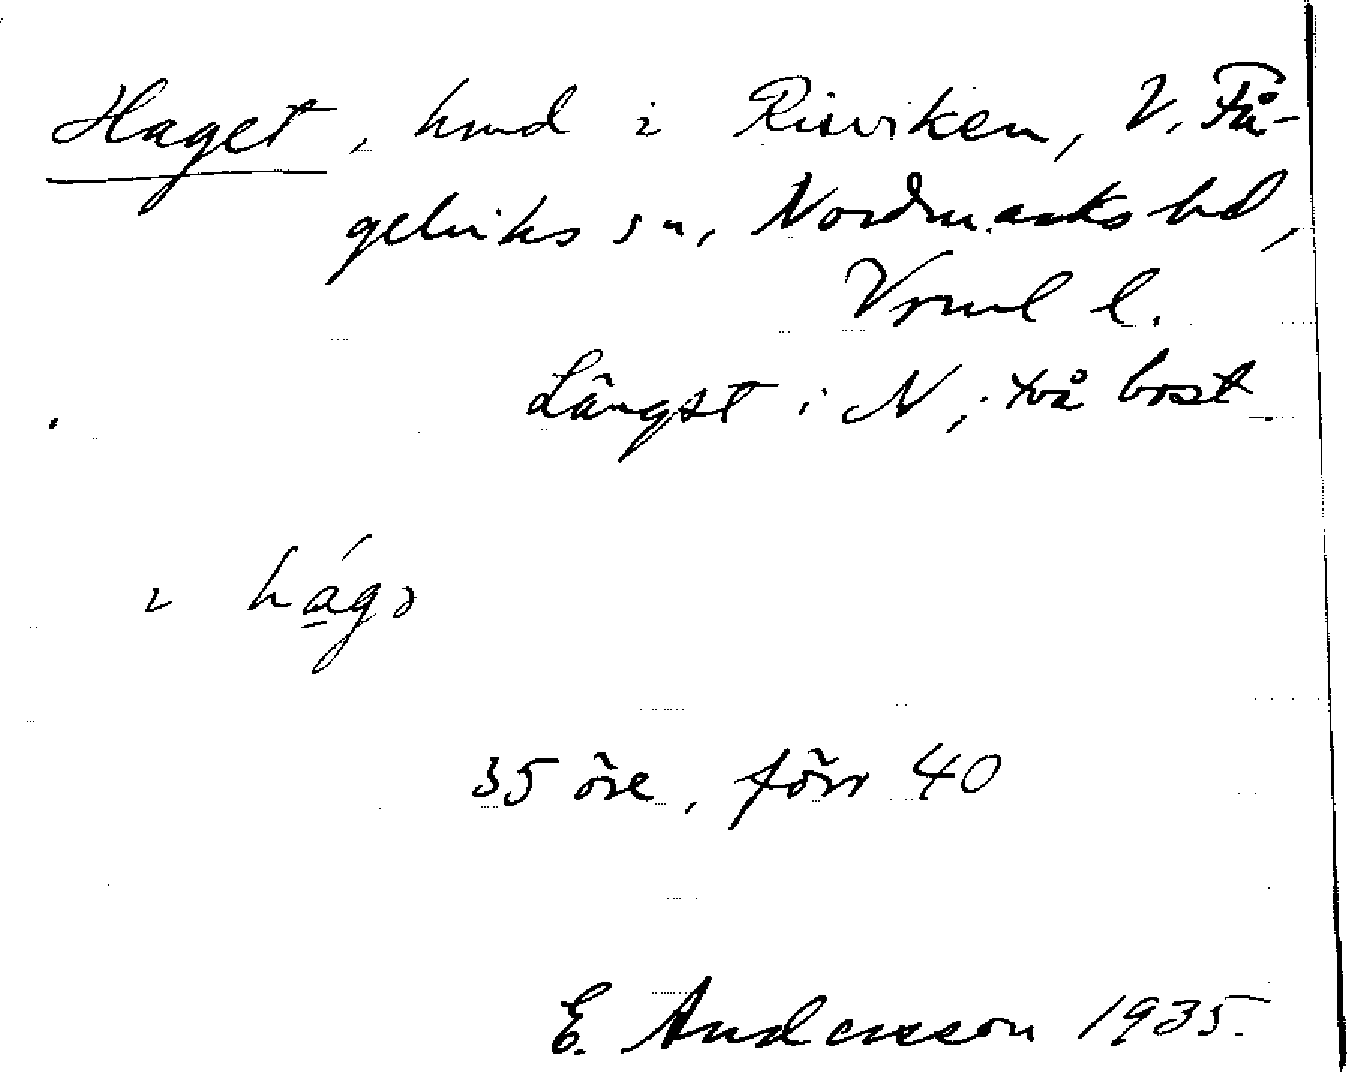 Haget, hmd i Risviken, V. Få-
gelviks sn, Nordmarks hd,
Vrml l.
Längst i N, två bost
i hágə
35 öre, förr 40
E. Andersson 1935.